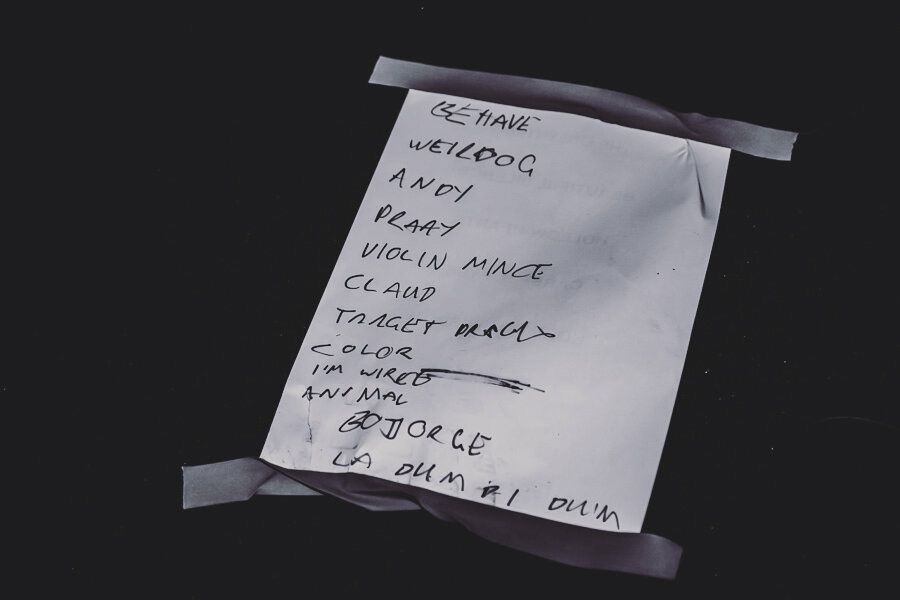 BEHAVE
WEIRDOG
ANDY
PRAAY
VIOLIN MINCE
CLAUD
TARGET
COLOR
I'M WIRED
ANIMAL
BODJORGE
LA DUM DI DUM